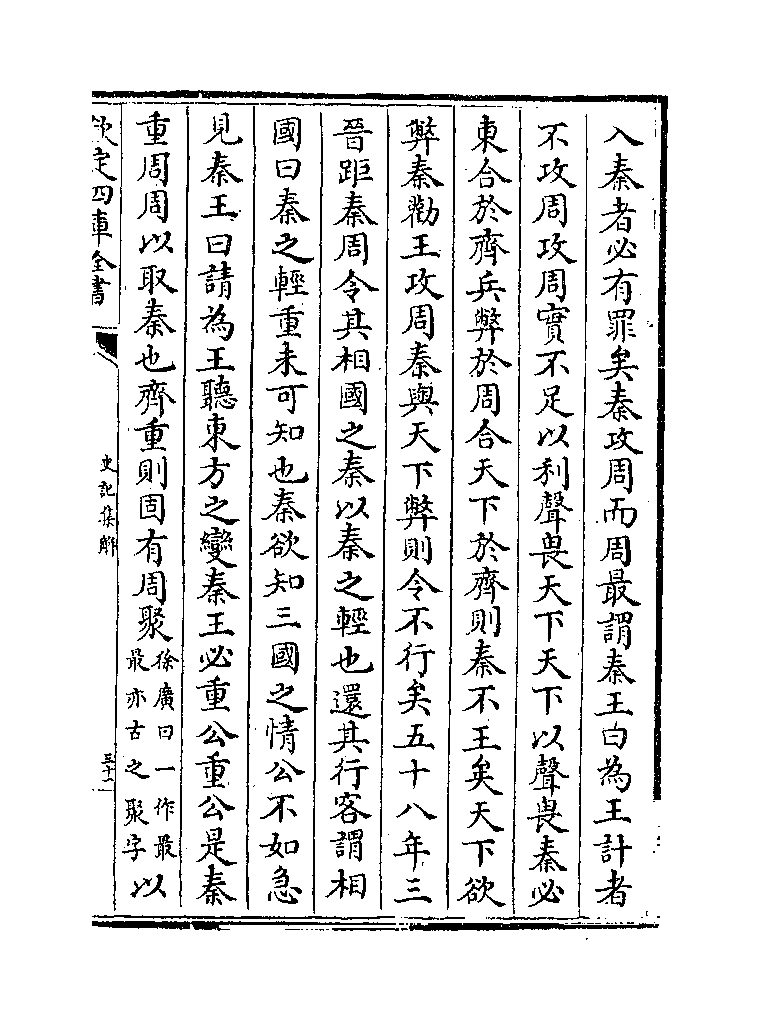 入秦者必有罪矣秦攻周而周最謂秦王曰為王計者
不攻周攻周實不足以利聲畏天下天下以聲畏秦必
東合於齊兵弊於周合天下於齊則秦不王矣天下欲
弊秦勸王攻周秦與天下弊則令不行矣五十八年三
晉距秦周令其相國之秦以秦之輕也還其行客謂相
國曰秦之輕重未可知也秦欲知三國之情公不如急
見秦王曰請為王聽東方之變秦王必重公重公是秦
重周周以取秦也齊重則固有周聚徐廣曰一作最最亦古之聚字以
欽定四庫全書
史記集解
三十一